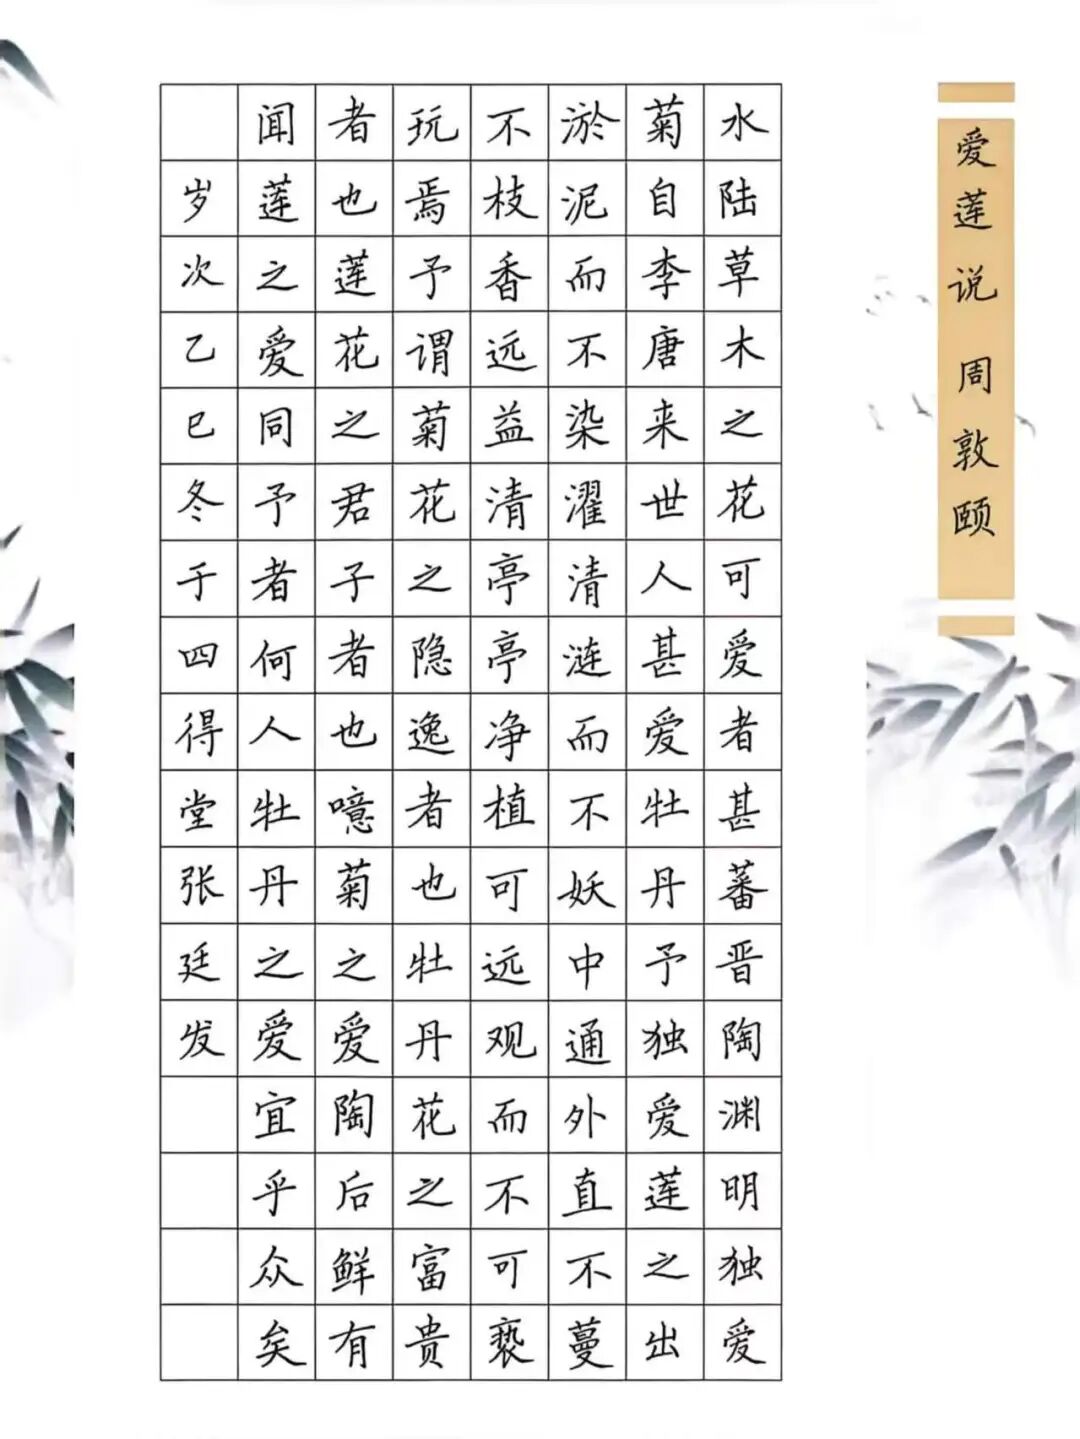 爱莲说 周敦颐
水陆草木之花可爱者甚蕃晋陶渊明独爱
菊自李唐来世人甚爱牡丹予独爱莲之出
淤泥而不染濯清涟而不妖中通外直不蔓
不枝香远益清亭亭净植可远观而不可亵
玩焉予谓菊花之隐逸者也牡丹花之富贵
者也莲花之君子者也噫菊之爱陶后鲜有
闻莲之爱同予者何人牡丹之爱宜乎众矣
岁次乙巳冬于四得堂张廷发